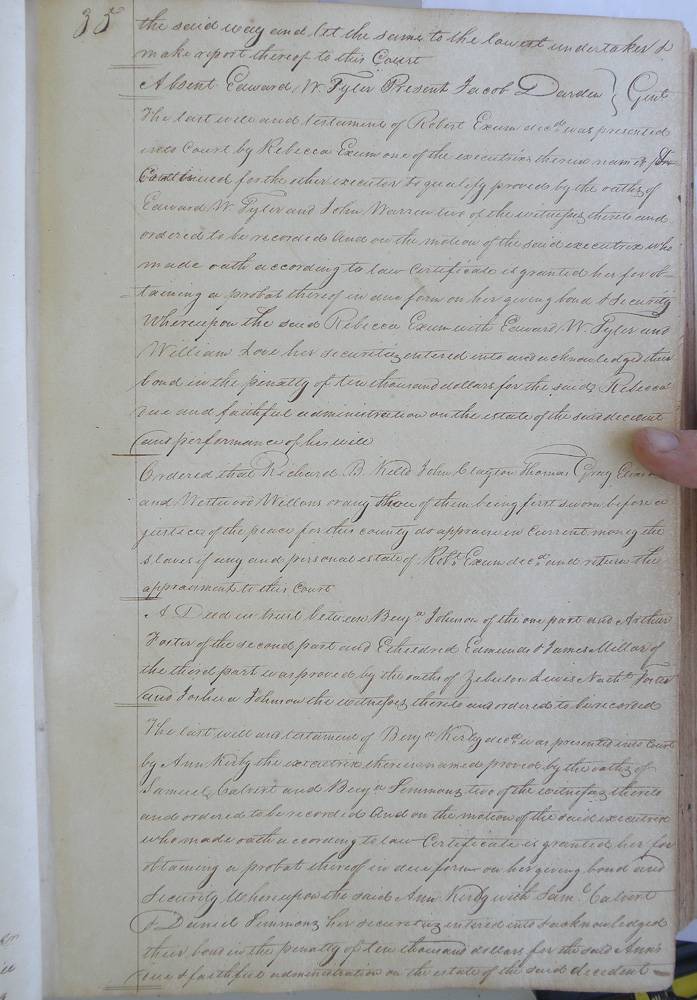 35
the said way and let the same to the lowest undertaker &
make report thereof to this Court
Absent Edward W Tyler Present Jacob Darden } Gent
The last will and testament of Robert Exum decd. was presented
into Court by Rebecca Exum one of the executrix therein named
for the other executor to qualify proved by the oaths of
Edward W Tyler and John Warren two of the witnesses thereto and
ordered to be recorded And on the motion of the said executrix who
made oath according to law Certificate is granted her for ob-
taining a probat thereof in due form on her giving bond & security
Whereupon the said Rebecca Exum with Edward W. Tyler and
William Love her securities entered into and acknowledged their
bond in the penalty of ten thousand dollars for the said Rebecca
true and faithful administration on the estate of the said decedent
and performance of his will
Ordered that Richard B Kello John Clayton Thomas Gray
and Westwood Wellons or any three of them being first sworn before a
justice of the peace for this county do appraise in current money the
slaves if any and personal estate of Robt. Exum decd. and return the
appraisment to this Court
A Deed in trust between Benja Johnson of the one part and Arthur
Foster of the second part and Etheldred Edmunds & James Millar of
the third part was proved by the oaths of Zebulon Lewis Nathl. Foster
and Joshua Johnson the witnesses thereto and ordered to be recorded
The last will and testament of Benja Kirby decd. was presented into Court
by Ann Kirby the executrix therein named proved by the oaths of
Samuel Calvert and Benja Simmons two of the witnesses thereto
and ordered to be recorded And on the motion of the said executrix
who made oath according to law Certificate is granted her for
obtaining a probat thereof in due form on her giving bond and
Security Whereupon the said Ann Kirby with Saml Calvert
& Daniel Simmons her securities entered into & acknowledged
their bond in the penalty of ten thousand dollars for the said Ann's
true & faithful administration on the estate of the said decedent